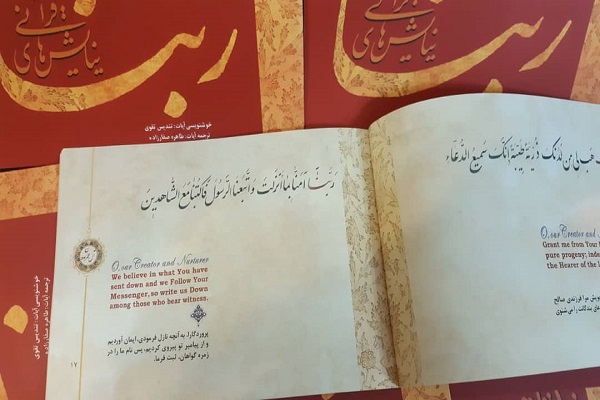 نیایش‌های قرآنی
ربنا
خوشنویسی آیات: تندیس تقوی
ترجمه آیات: طاهره صفارزاده
نیایش‌های قرآنی
ربنا
رَبَّنا آمَنّا بِما اَنْزَلْتَ وَاتَّبَعْنَا الرَّسُولَ فَاكْتُبْنا مَعَ الشّاهِدينَ
O, our Creator and Nurturer
We believe in what You have
sent down and we Follow Your
Messenger, so write us Down
among those who bear witness.
پروردگارا، به آنچه نازل فرمودی، ایمان آوردیم
و از پیامبر تو پیروی کردیم، پس نام ما را در
زمره گواهان، ثبت فرما.
۱۷
هَب لي مِن لَدُنكَ ذُرِّيَّةً طَيِّبَةً اِنَّكَ سَميعُ الدُّعاء
O, our Creator and
Grant me from Your
pure progeny; inde
the Hearer of the
مرا فرزندی صالح
بندگانت را می شنوی
خوشنویسی آیات: تندیس تقوی
ترجمه آیات: طاهره صفارزاده